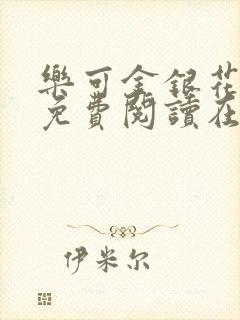 樂可金銀花
免費閱讀在
伊米尔